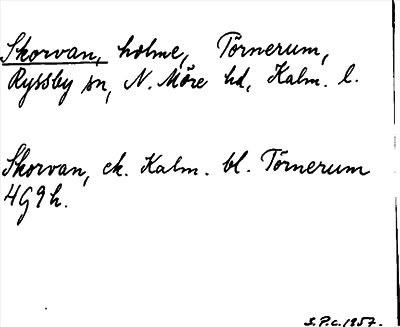 Skorvan, holme, Törnerum,
Ryssby sn, N. Möre hd, Kalm. l.
Skorvan, ek. Kalm. bl. Törnerum
4G9h.
S.P.c. 1957.